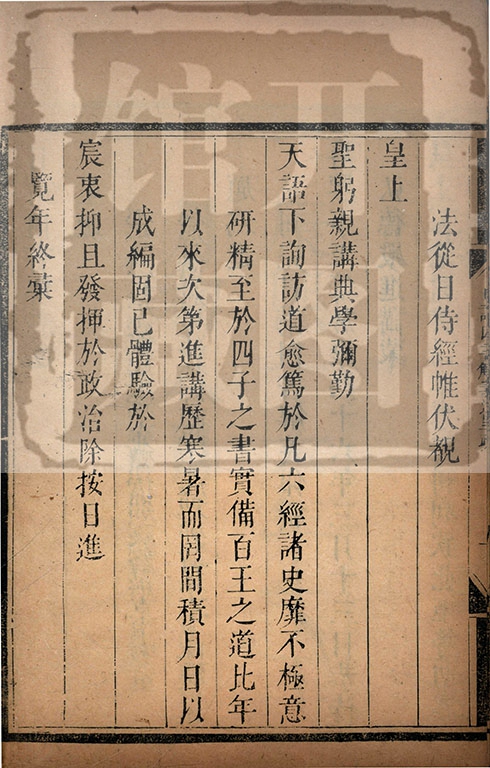 法從日侍經帷伏覩
皇上
聖躬親講典學彌勤
天語下詢訪道愈篤於凡六經諸史靡不極意
研精至於四子之書實備百王之道比年
以來次第進講歷寒暑而罔間積月日以
成編固已體驗於
宸衷抑且發揮於政治除按日進
覽年終彙